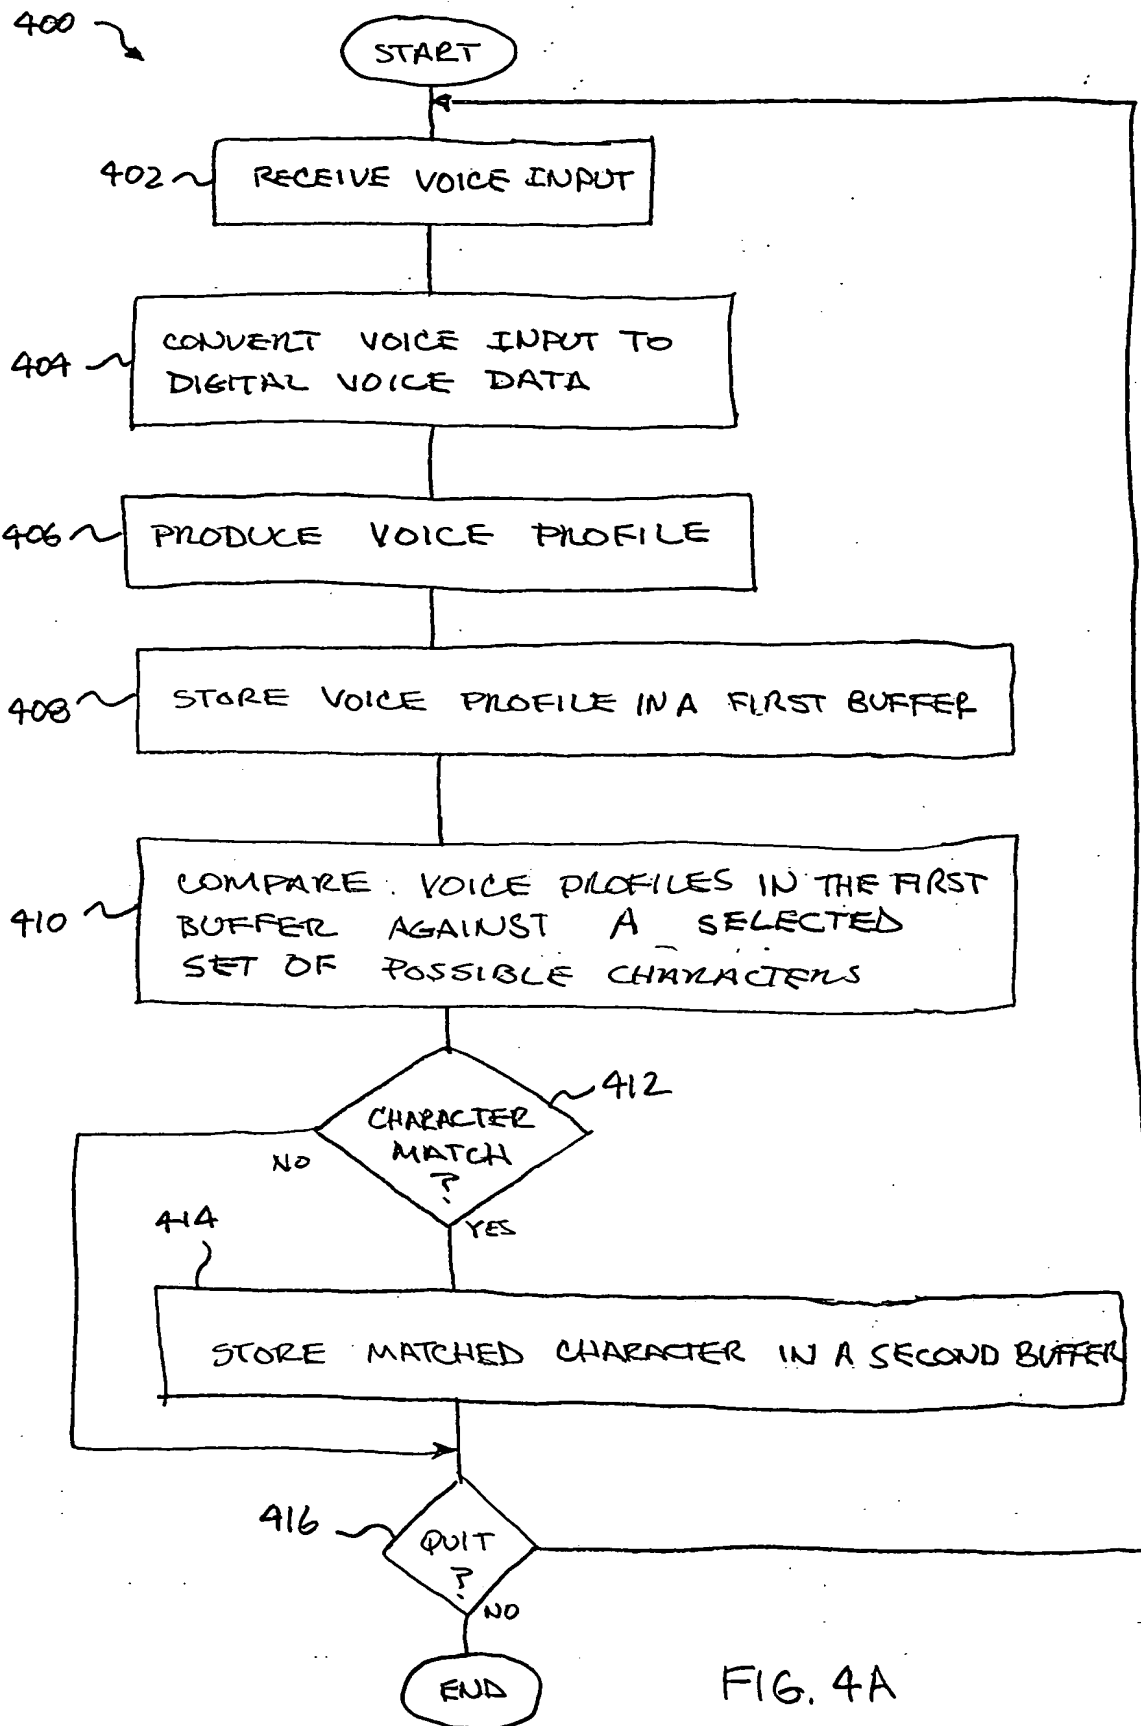 400
START
402
RECEIVE VOICE INPUT
404
CONVERT VOICE INPUT TO
DIGITAL VOICE DATA
406
PRODUCE VOICE PROFILE
408
STORE VOICE PROFILE IN A FIRST BUFFER
410
COMPARE VOICE PROFILES IN THE FIRST
BUFFER AGAINST A SELECTED
SET OF POSSIBLE CHARACTERS
412
CHARACTER
MATCH
?
NO
YES
414
STORE MATCHED CHARACTER IN A SECOND BUFFER
416
QUIT
?
NO
END
FIG. 4A